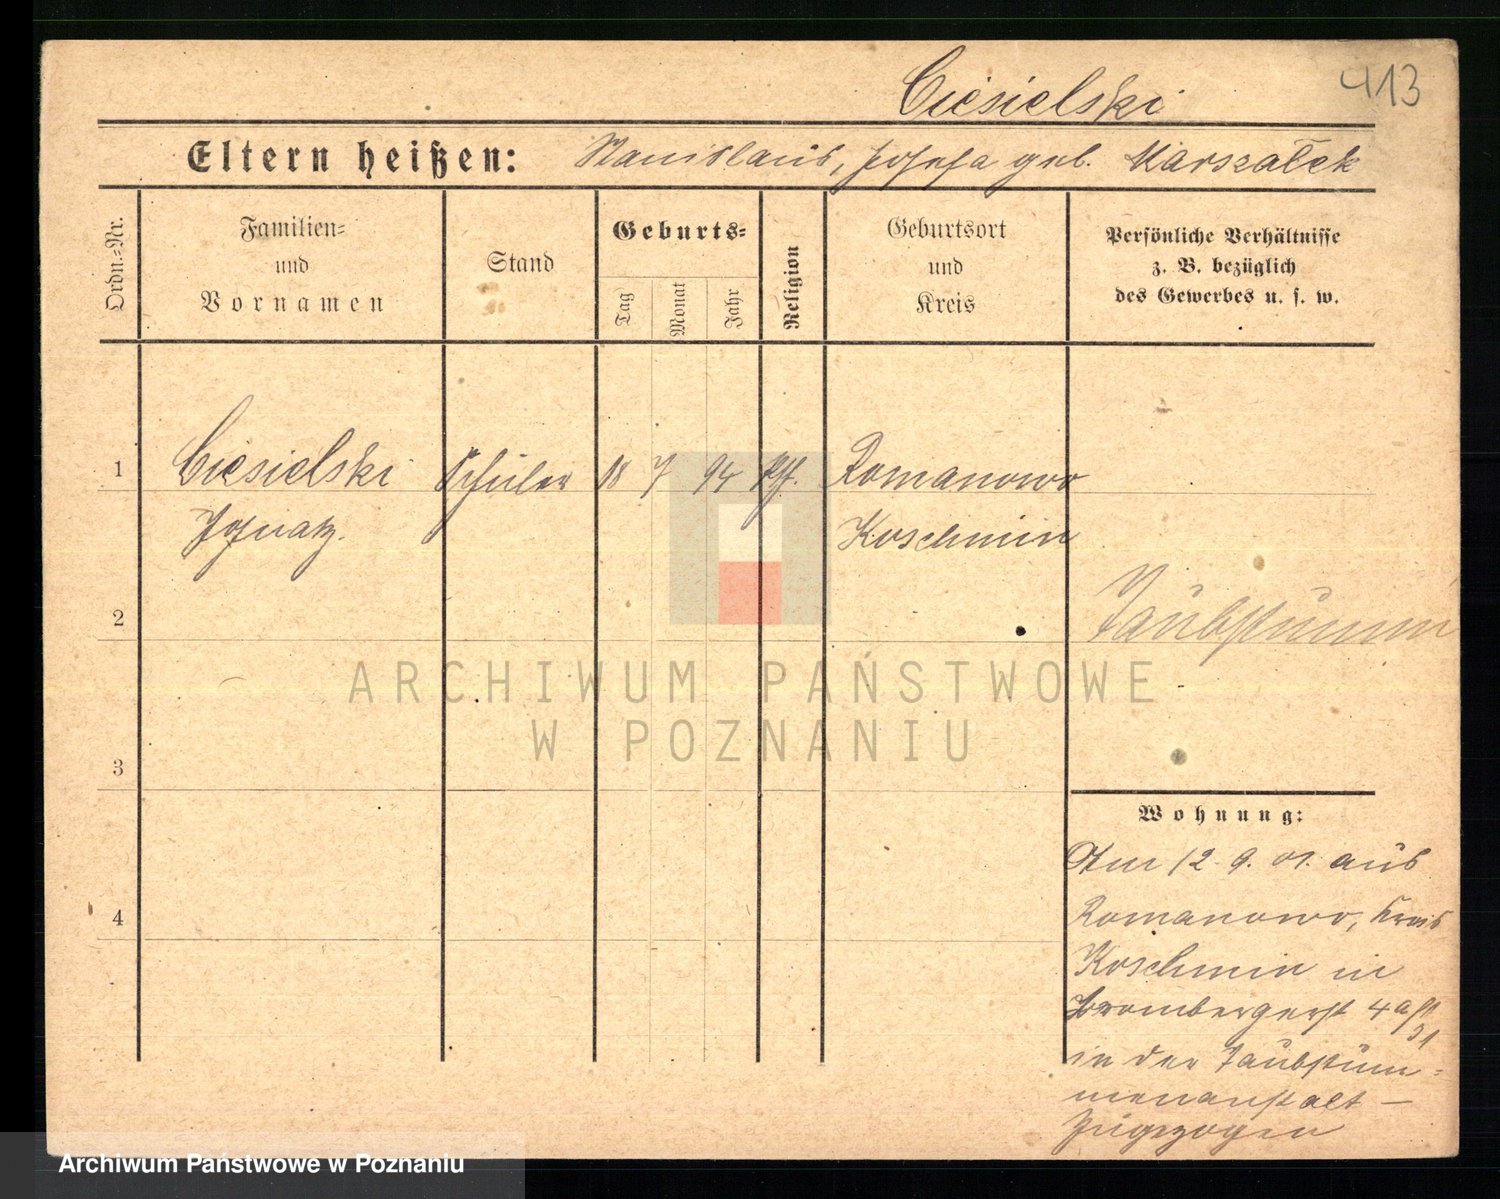 413
Ciesielski
Eltern heißen: Stanislaus, Josefa geb. Marszałek
Ordn.-Nr.
Familien-
und
Vornamen
Stand
Geburts-
Tag
Monat
Jahr
Religion
Geburtsort
und
Kreis
Persönliche Verhältnisse
z. B. bezüglich
des Gewerbes u. s. w.
1 Ciesielski Schüler 18 7 94 kth. Romanowo
Ignatz. Koschmin
2 Taubstumm
ARCHIWUM PAŃSTWOWE
W POZNANIU
3
Wohnung:
Am 12. 9. 01. aus
4 Romanowo, Kreis
Koschmin in
Brombergerst 4a
in der Taubstum-
menanstalt –
zugezogen
Archiwum Państwowe w Poznaniu